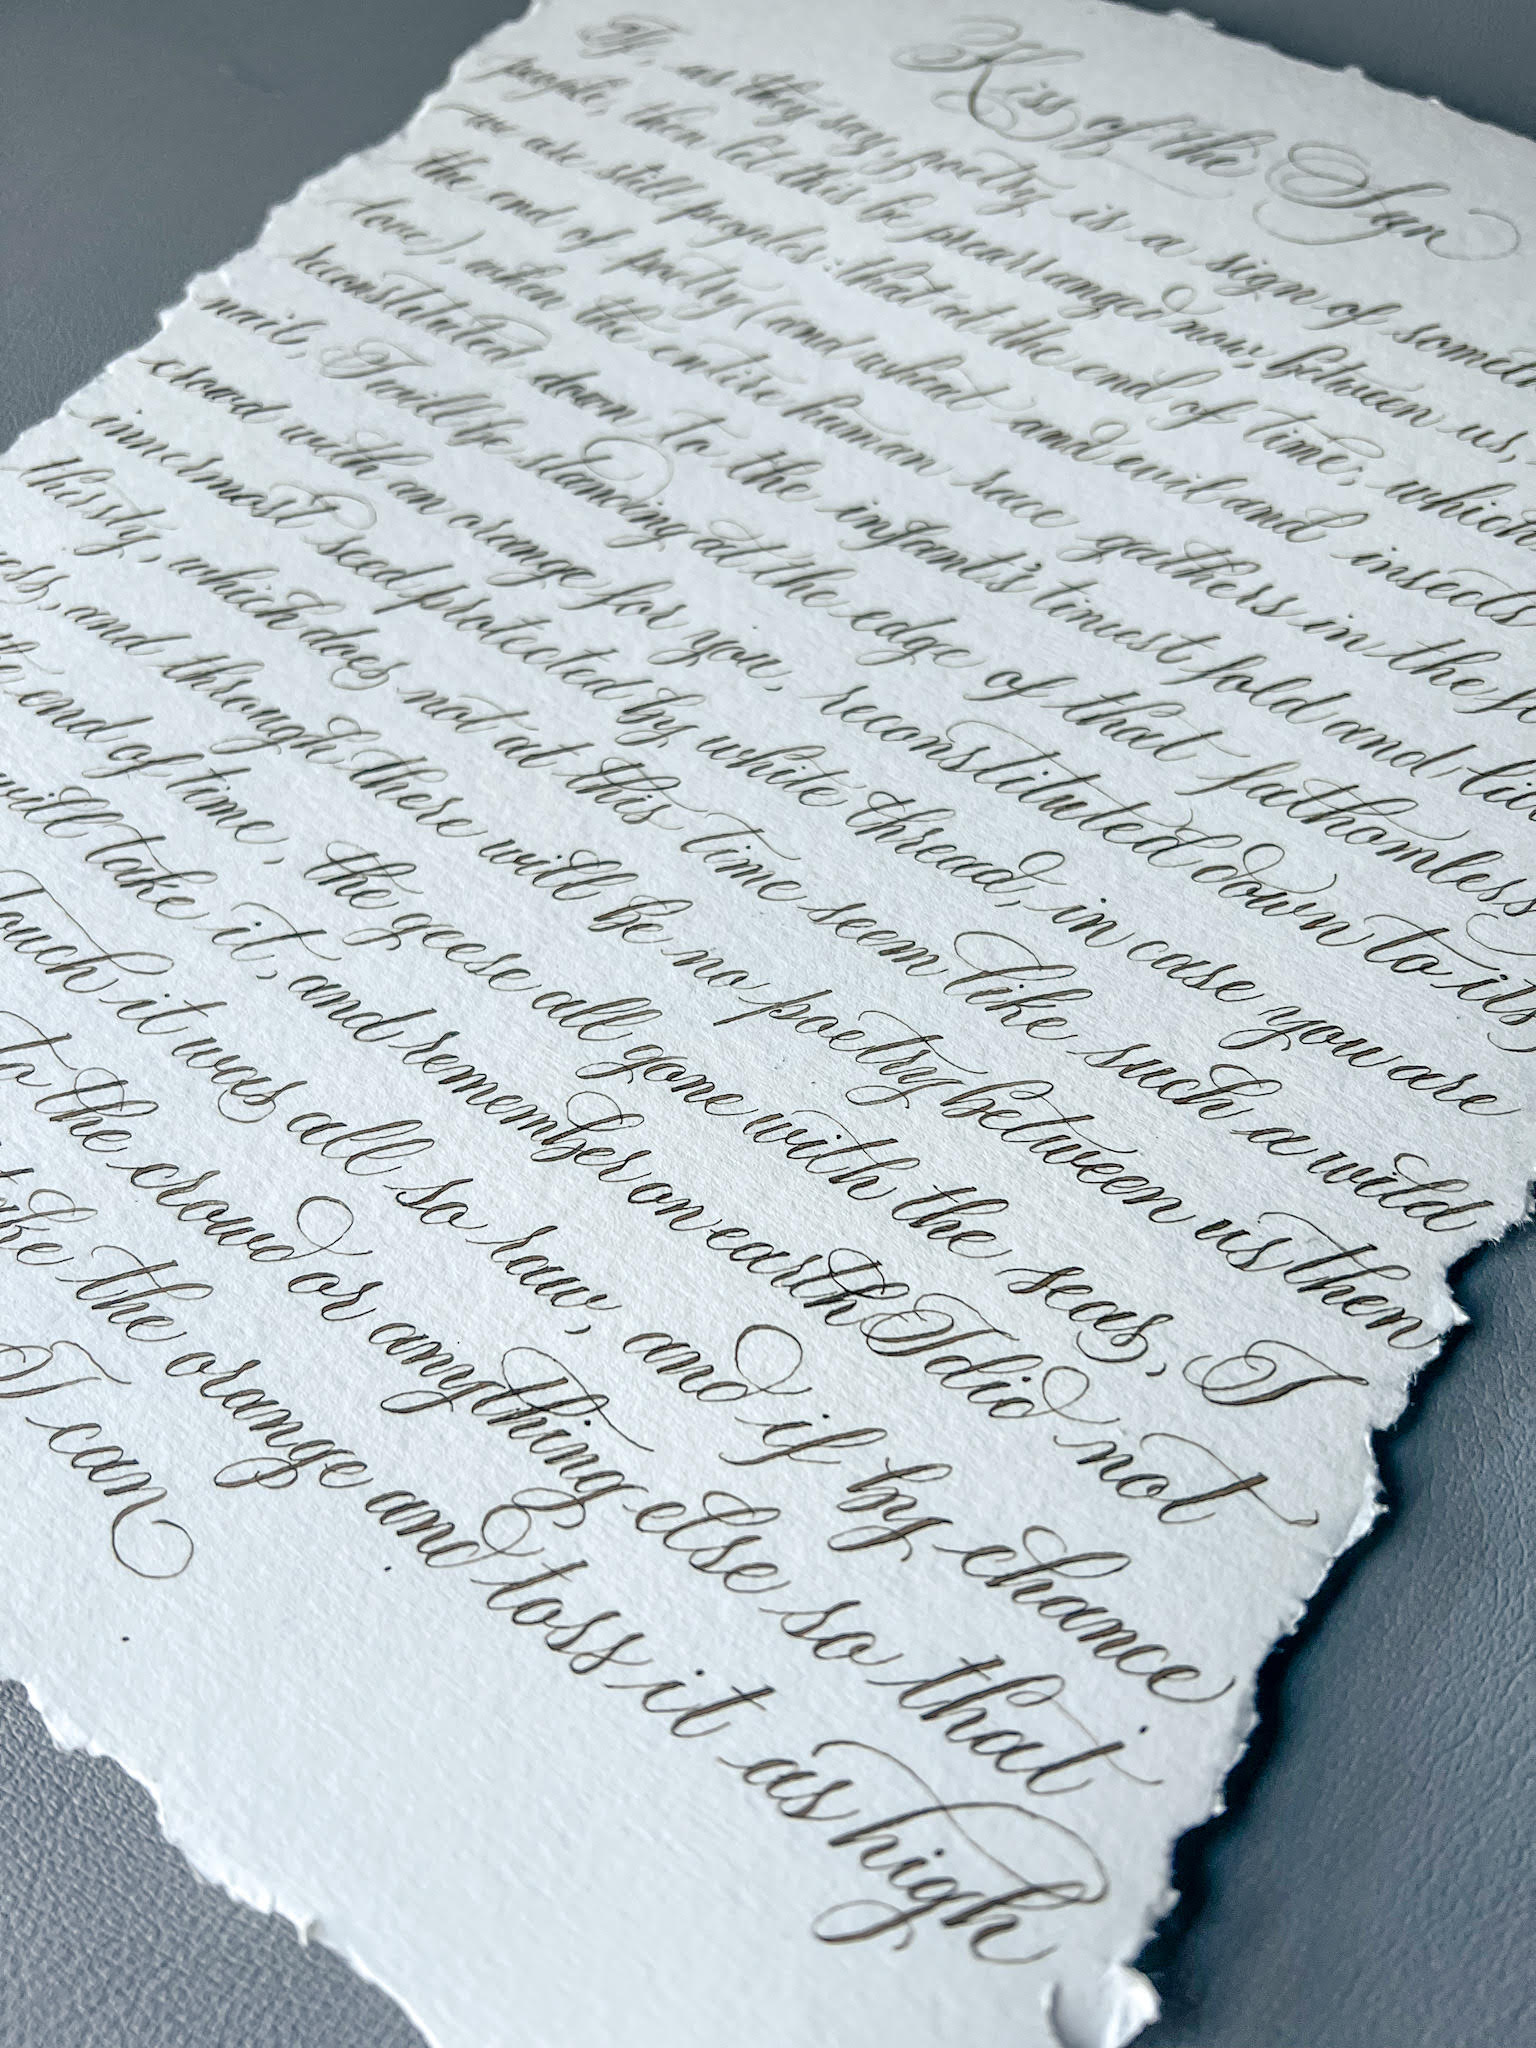 Kiss of the Sun
If, as they say, poetry is a sign of someth
people, then let this be prearranged now, between us,
we are still peoples: that at the end of time, which
the end of poetry (and wheat and evil and insects
love), when the entire human race gathers in the
reconstituted down to the infant's tiniest fold and
nail, I will be standing at the edge of that fathomless
crowd with an orange for you, reconstituted down to its
innermost seed protected by white thread, in case you are
thirsty, which does not at this time seem like such a wild
ess, and through there will be no poetry between us then
end of time, the geese all gone with the seas, I
will take it, and remember on earth I did not
touch it was all so raw, and if by chance
to the crowd or anything else so that
take the orange and toss it as high
I can